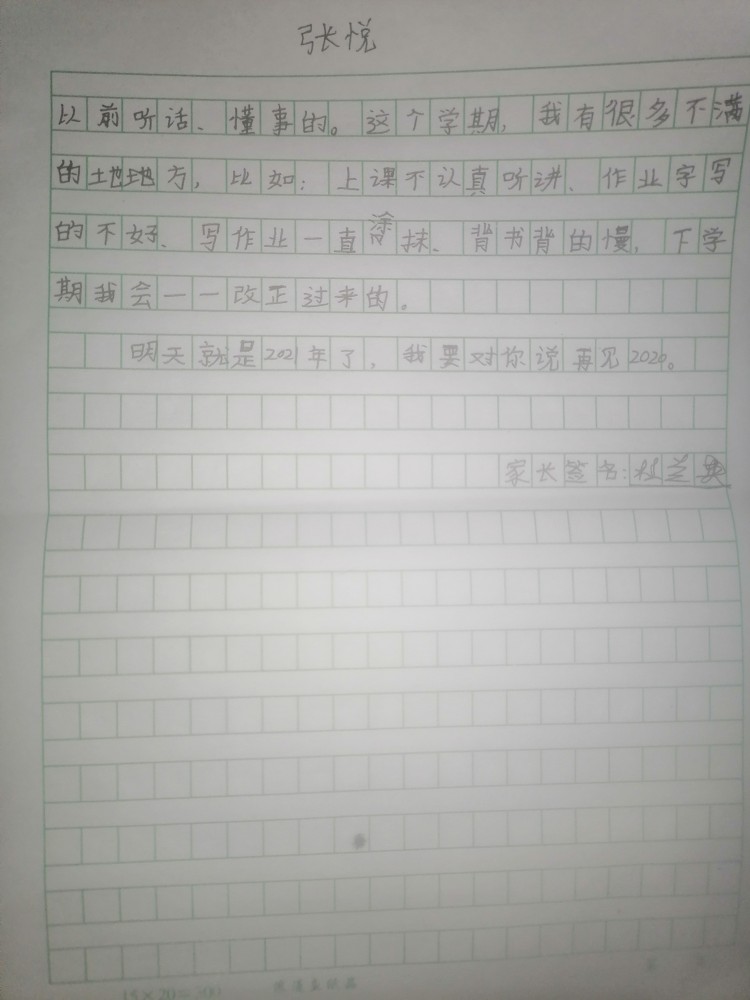 张悦
以前听话、懂事的。这个学期，我有很多不满
的地地方，比如：上课不认真听讲、作业字写
的不好、写作业一直涂抹、背书背的慢，下学
期我会一一改正过来的。
明天就是2021年了，我要对你说再见2020。
家长签名：
15×20=300